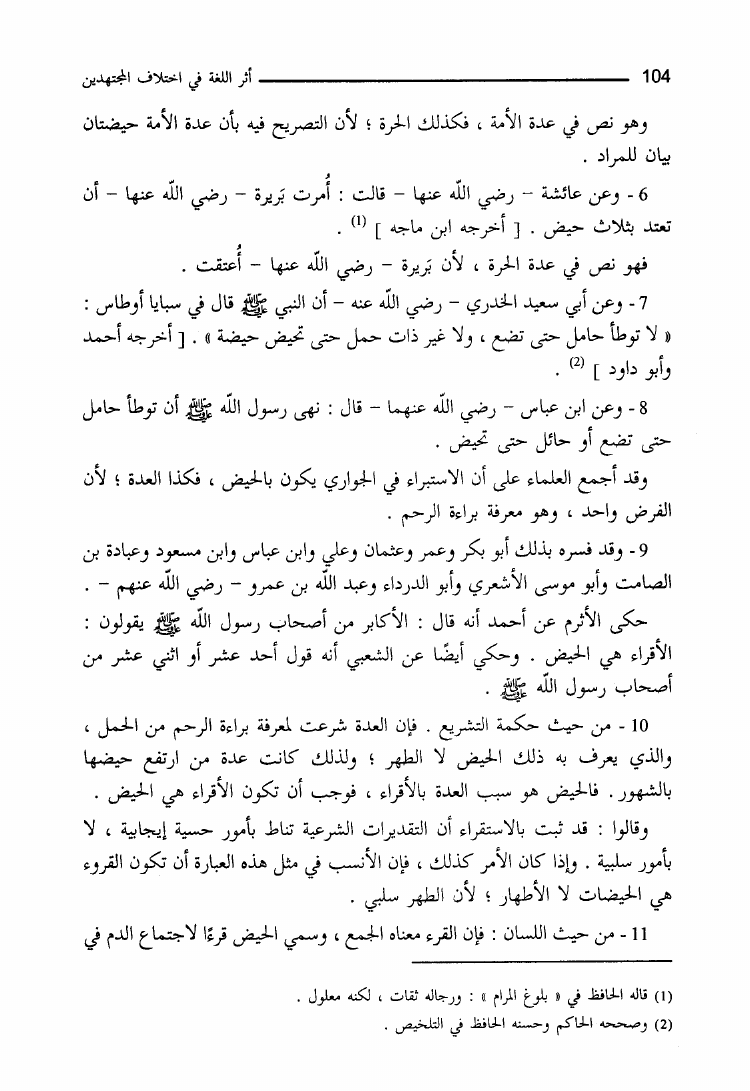 104 أثر اللغة في اختلاف المجتهدين
وهو نص في عدة الأمة ، فكذلك الحرة ؛ لأن التصريح فيه بأن عدة الأمة حيضتان
بيان للمراد .
6 - وعن عائشة – رضي اللّه عنها – قالت : أُمرت بَريرة – رضي اللّه عنها – أن
تعتد بثلاث حيض . [ أخرجه ابن ماجه ] (1) .
فهو نص في عدة الحرة ، لأن بَريرة – رضي اللّه عنها – أُعتقت .
7 - وعن أبي سعيد الخدري – رضي اللّه عنه – أن النبي ﷺ قال في سبايا أوطاس :
« لا توطأ حامل حتى تضع ، ولا غير ذات حمل حتى تحيض حيضة » . [ أخرجه أحمد
وأبو داود ] (2) .
8 - وعن ابن عباس – رضي اللّه عنهما – قال : نهى رسول اللّه ﷺ أن توطأ حامل
حتى تضع أو حائل حتى تحيض .
وقد أجمع العلماء على أن الاستبراء في الجواري يكون بالحيض ، فكذا العدة ؛ لأن
الغرض واحد ، وهو معرفة براءة الرحم .
9 - وقد فسره بذلك أبو بكر وعمر وعثمان وعلي وابن عباس وابن مسعود وعبادة بن
الصامت وأبو موسى الأشعري وأبو الدرداء وعبد اللّه بن عمرو – رضي اللّه عنهم – .
حكى الأثرم عن أحمد أنه قال : الأكابر من أصحاب رسول اللّه ﷺ يقولون :
الأقراء هي الحيض . وحكي أيضًا عن الشعبي أنه قول أحد عشر أو اثني عشر من
أصحاب رسول اللّه ﷺ .
10 - من حيث حكمة التشريع . فإن العدة شرعت لمعرفة براءة الرحم من الحمل ،
والذي يعرف به ذلك الحيض لا الطهر ؛ ولذلك كانت عدة من ارتفع حيضها
بالشهور . فالحيض هو سبب العدة بالأقراء ، فوجب أن تكون الأقراء هي الحيض .
وقالوا : قد ثبت بالاستقراء أن التقديرات الشرعية تناط بأمور حسية إيجابية ، لا
بأمور سلبية . وإذا كان الأمر كذلك ، فإن الأنسب في مثل هذه العبارة أن تكون القروء
هي الحيضات لا الأطهار ؛ لأن الطهر سلبي .
11 - من حيث اللسان : فإن القرء معناه الجمع ، وسمي الحيض قرءًا لاجتماع الدم في
(1) قاله الحافظ في « بلوغ المرام » : ورجاله ثقات ، لكنه معلول .
(2) وصححه الحاكم وحسنه الحافظ في التلخيص .